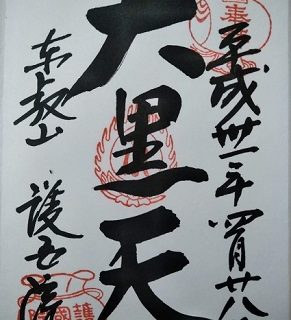 平成卅一年四月廿八
大黒天
東叡山 護国院